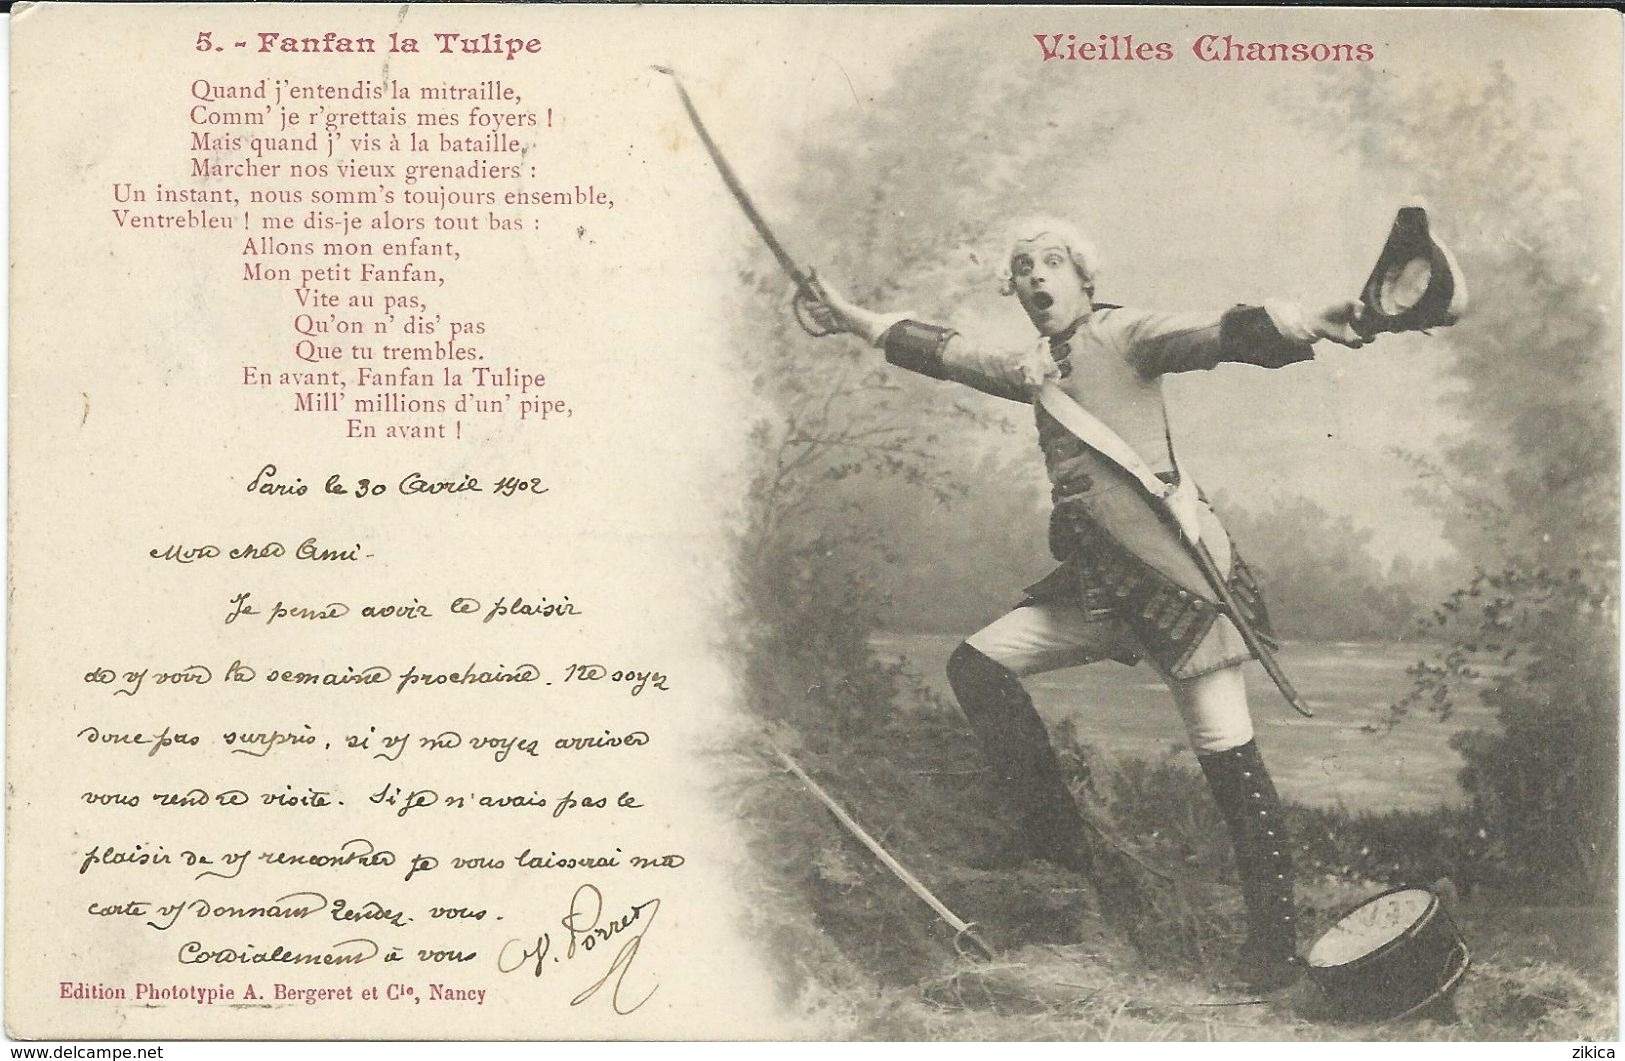 5. - Fanfan la Tulipe
Vieilles Chansons
Quand j'entendis la mitraille,
Comm' je r'grettais mes foyers !
Mais quand j' vis à la bataille,
Marcher nos vieux grenadiers :
Un instant, nous somm's toujours ensemble,
Ventrebleu ! me dis-je alors tout bas :
Allons mon enfant,
Mon petit Fanfan,
Vite au pas,
Qu'on n' dis' pas
Que tu trembles.
En avant, Fanfan la Tulipe
Mill' millions d'un' pipe,
En avant !
Paris le 30 Avril 1902
Mon cher Ami -
Je pense avoir le plaisir
de vs voir la semaine prochaine. Ne soyez
donc pas surpris, si vs me voyez arriver
vous rendre visite. Si je n'avais pas le
plaisir de vs rencontrer je vous laisserai ma
carte vs donnant rendez-vous.
Cordialement à vous
Edition Phototypie A. Bergeret et Cie, Nancy
www.delcampe.net
zikica